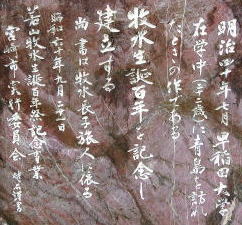 明治四十年七月 早稲田大学
在学中(二三歳)に青島を訪れ
たときの作である
牧水生誕百年を記念し
建立する
尚書は牧水長子旅人に依る
昭和六十年九月二十一日
若山牧水生誕百年祭記念事業
宮崎市実行委員会